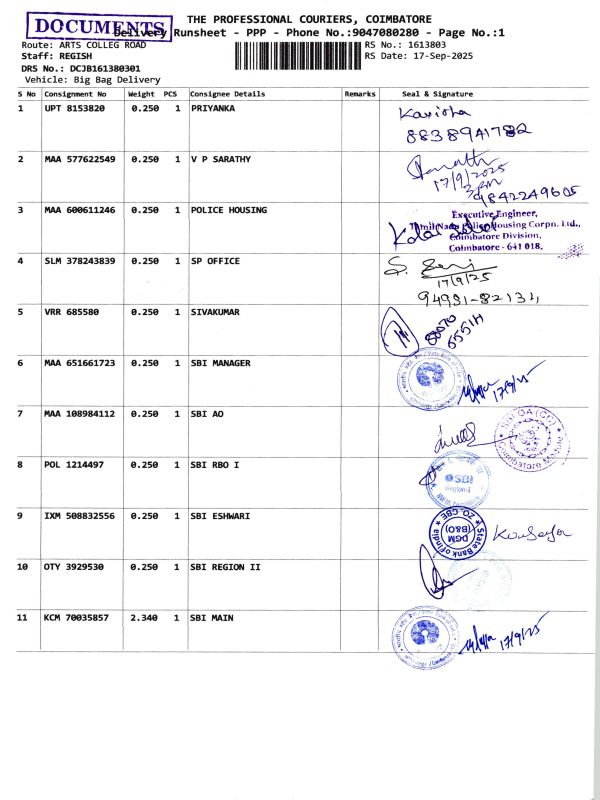 DOCUMENTS
THE PROFESSIONAL COURIERS, COIMBATORE
Delivery Runsheet - PPP - Phone No.:9047080280 - Page No.:1
Route: ARTS COLLEG ROAD
RS No.: 1613803
Staff: REGISH
RS Date: 17-Sep-2025
DRS No.: DCJB161380301
Vehicle: Big Bag Delivery
S No Consignment No Weight PCS Consignee Details Remarks Seal & Signature
1 UPT 8153820 0.250 1 PRIYANKA
8838941782
2 MAA 577622549 0.250 1 V P SARATHY
17/9/2025
9842249605
3 MAA 600611246 0.250 1 POLICE HOUSING
Executive Engineer,
Tamil Nadu Police Housing Corpn. Ltd.,
Coimbatore Division,
Coimbatore - 641 018.
4 SLM 378243839 0.250 1 SP OFFICE
17/9/25
5 VRR 685580 0.250 1 SIVAKUMAR
6 MAA 651661723 0.250 1 SBI MANAGER
17/9/25
7 MAA 108984112 0.250 1 SBI AO
8 POL 1214497 0.250 1 SBI RBO I
SBI
Region-I
9 IXM 508832556 0.250 1 SBI ESHWARI
State Bank of India
ZO. CBE
DGM
(B&O)
10 OTY 3929530 0.250 1 SBI REGION II
11 KCM 70035857 2.340 1 SBI MAIN
17/9/25